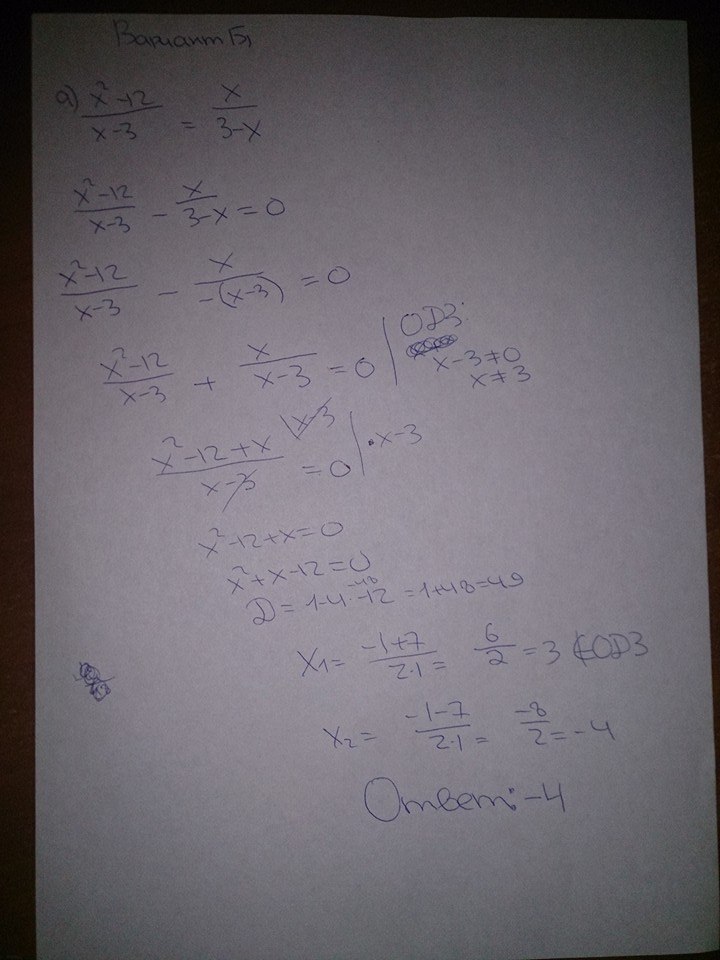 Вариант Б1
а) x²-12/x-3 = x/3-x
x²-12/x-3 - x/3-x = 0
x²-12/x-3 - x/-(x-3) = 0
x²-12/x-3 + x/x-3 = 0 | ОДЗ:
x-3≠0
x≠3
x²-12+x\x-3/x-3 = 0 | ·x-3
x²-12+x=0
x²+x-12=0
-48
D=1-4·-12=1+48=49
x1= -1+7/2·1= 6/2=3 ∉ОДЗ
x2= -1-7/2·1= -8/2=-4
Ответ:-4